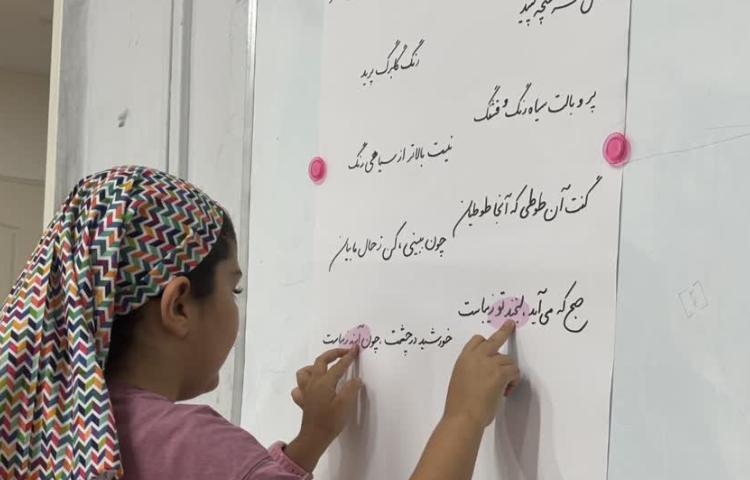 غنچه
رنگ گلبرگ پرید
پر و بالت سیاه رنگ و قشنگ
نیست بالاتر از سیاهی رنگ
گفت آن طوطی که آنجا طوطیان
چون ببینی، کن ز حال ما بیان
صبح که می‌آید، لبخند تو زیباست
خورشید در چشمت، چون زیباست